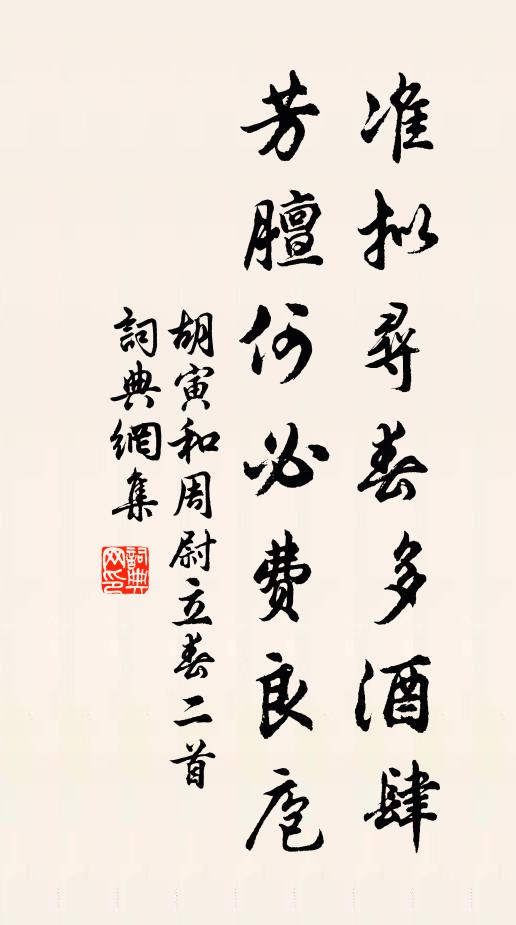 准拟尋春多酒肆
芳膻何必费良庖
胡寅和周尉立春二首
詞典網集
詞典网印